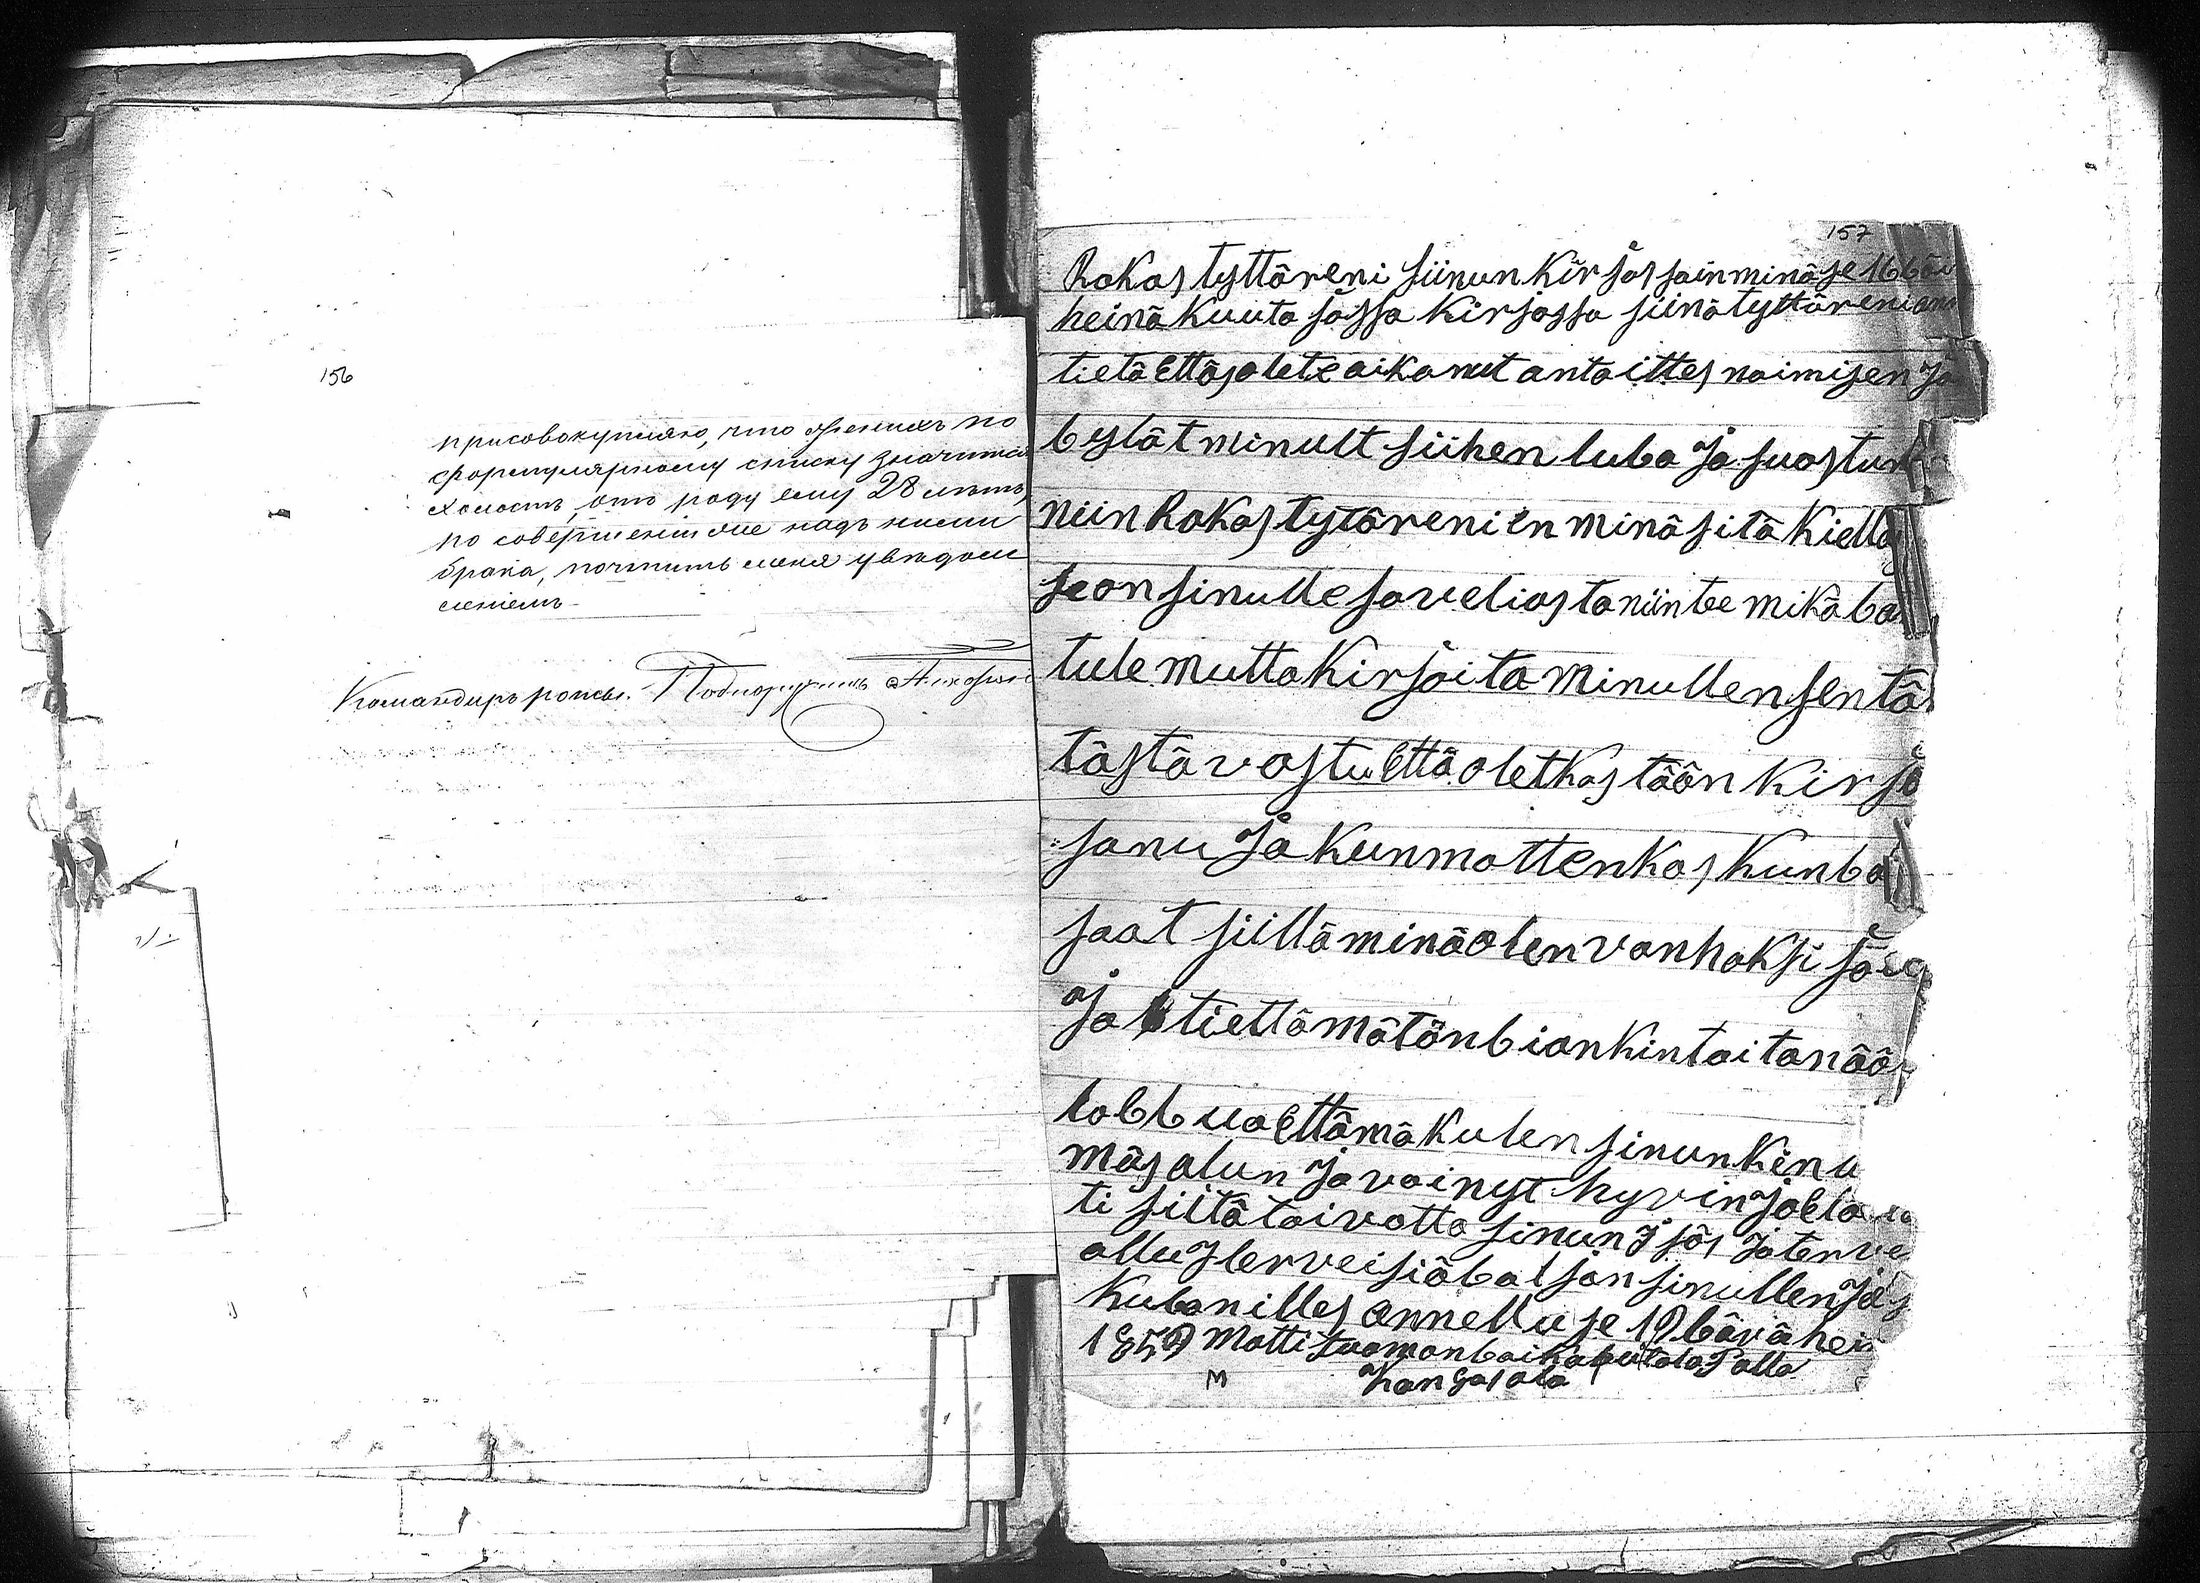 156
присовокупляю, что женихъ по
формулярному списку значится
холостъ, отъ роду ему 28 лѣтъ,
по совершеніи же надъ ними
брака, почтить меня увѣдом
леніемъ.
Командиръ роты. Подпоручикъ
157
Rakas tyttäreni siinun kirjas sain minä se 16 bäi
heinä kuuta jossa kirjassa siinä tyttäreni
tietä että solet aikonut anta ittes naimisen ja
bylät minult siihen luba ja suostun
niin Rakas tytäreni en minä sitä kiellä
se on sinulle soveliasta niin tee mikä ba
tule mutta kirjoita minullen sen tä
tästä vastu että oletkas tään kirjä
sanu ja kun mattenkas kunba
saat siillä minä olen vanhaksi
ja tiettämätön bian kin taita nää
lobbua että mä kulen sinun kin u
mäs olun ja vai nyt hyvin jäelä
ti siitä toivotta sinun Isäs ja terve
allu terveisiä baljan sinullen ja
kubanilles annettu se 19 bävä hei
1859 Matti Tuomanboika talalla
M Kangasala